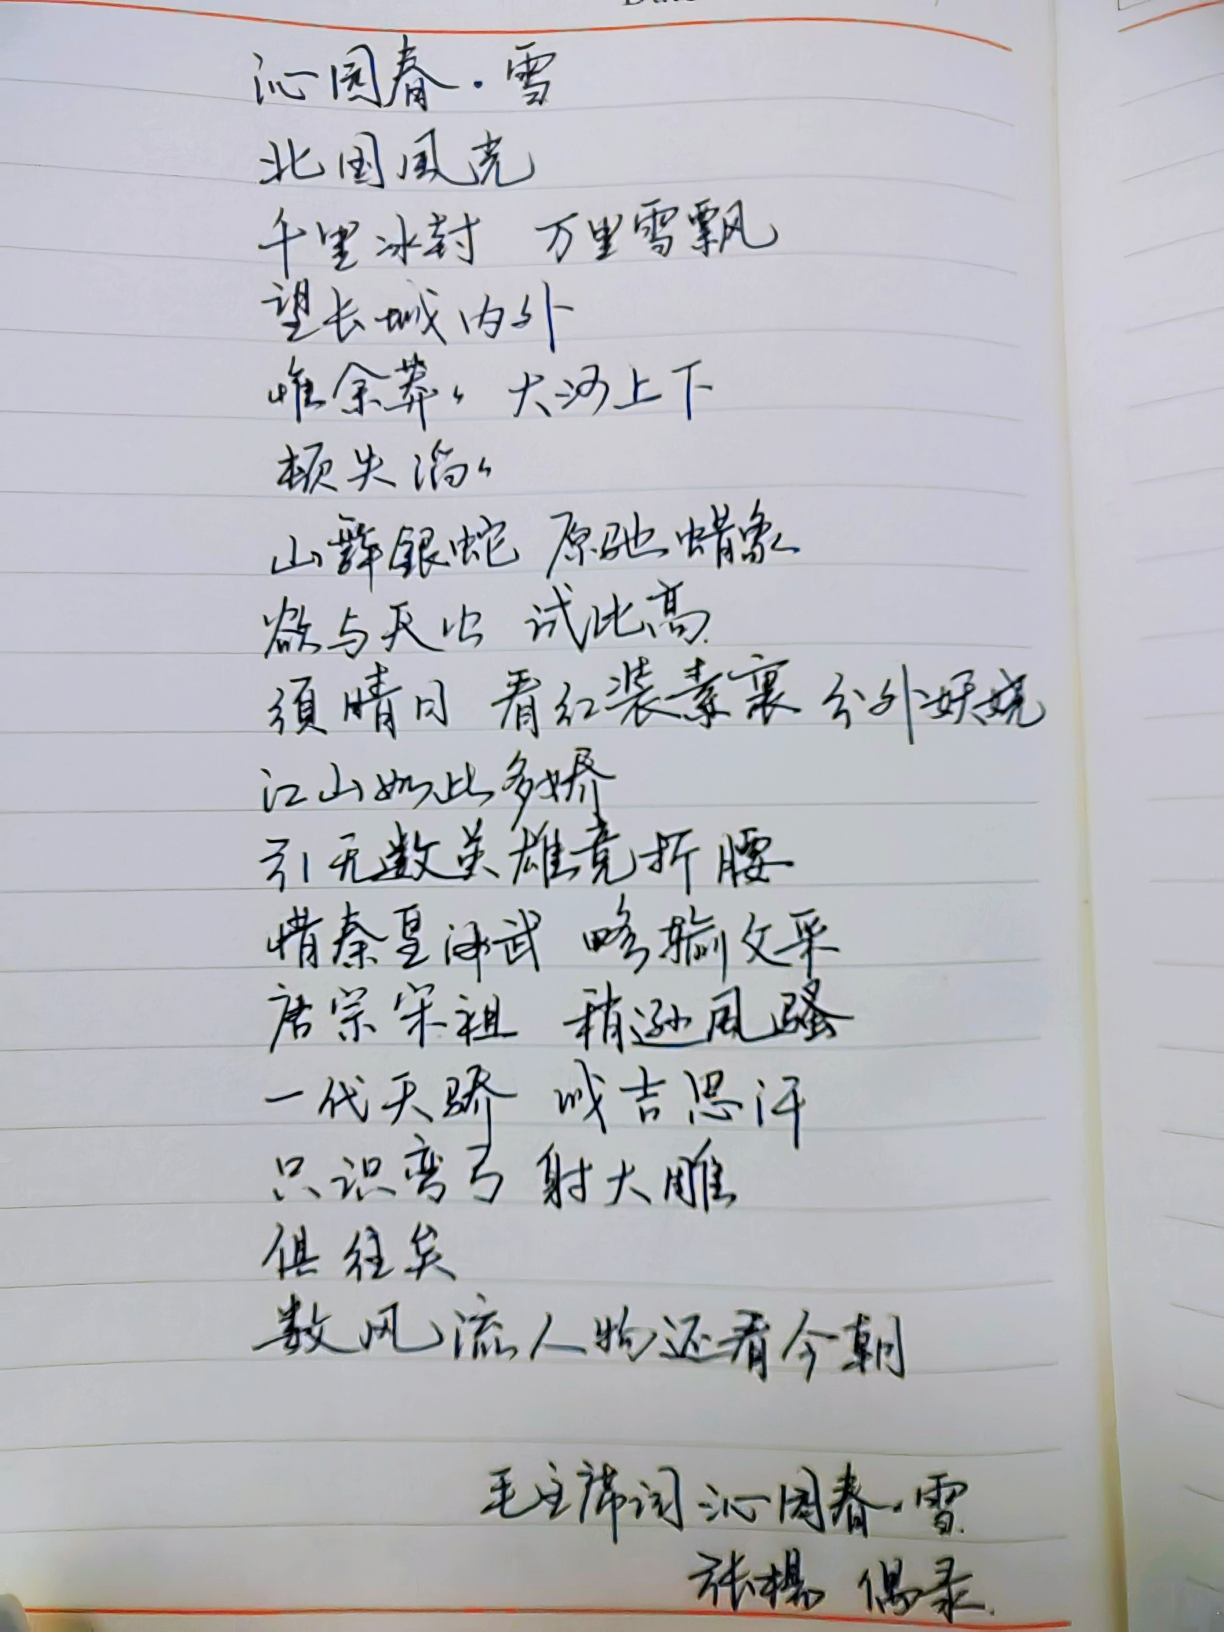 沁园春·雪
北国风光
千里冰封 万里雪飘
望长城内外
惟余莽々 大河上下
顿失滔々
山舞銀蛇 原驰蜡象
欲与天公 试比高
须晴日 看红装素裹 分外妖娆
江山如此多娇
引无数英雄竞折腰
惜秦皇汉武 略输文采
唐宗宋祖 稍逊风骚
一代天骄 成吉思汗
只识弯弓 射大雕
俱往矣
数风流人物还看今朝
毛主席词 沁园春·雪
张杨 偶录